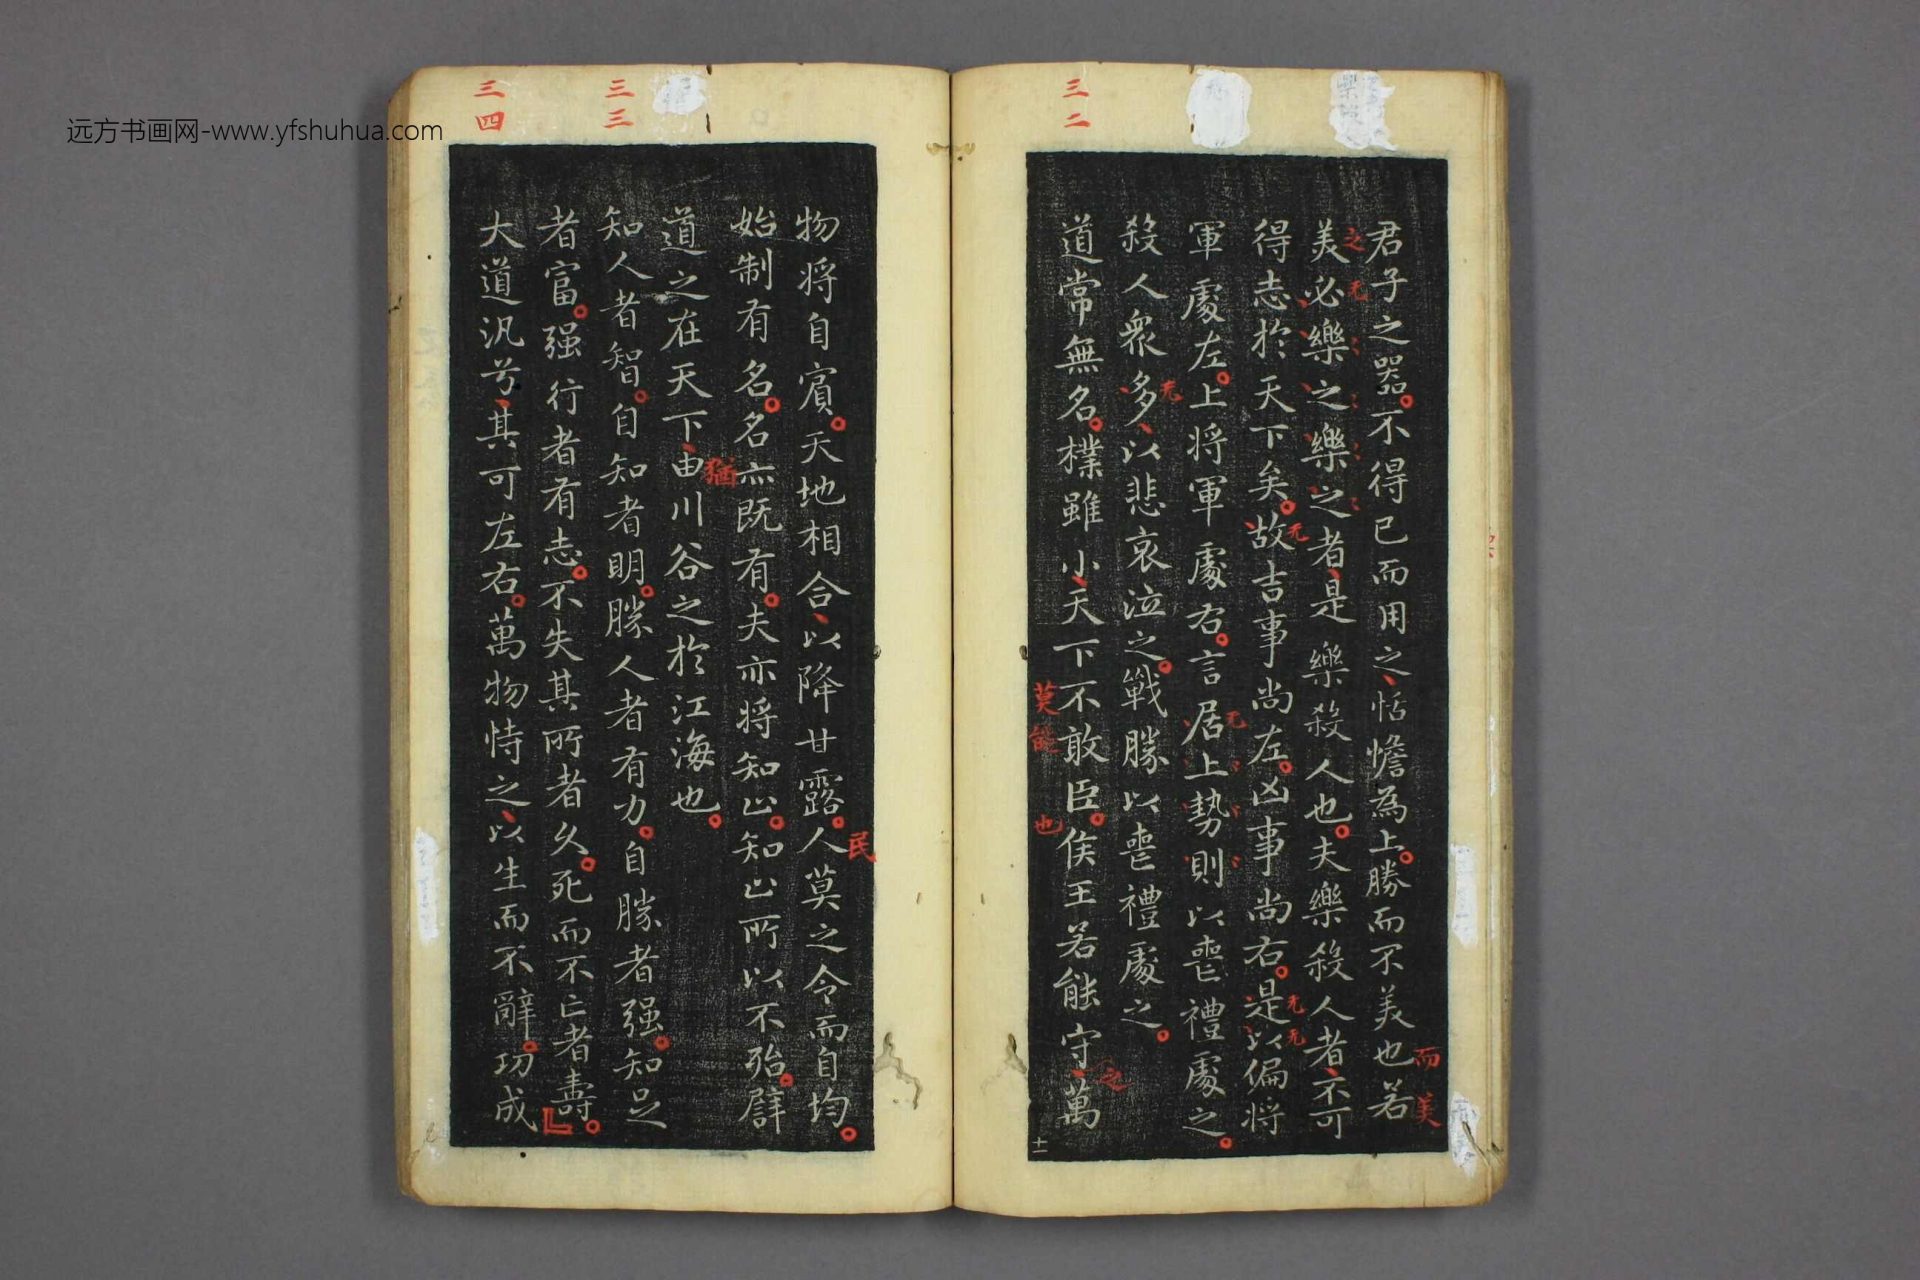 远方书画网-www.yfshuhua.com
三二
君子之器不得已而用之恬憺為上勝而不美也若
而美
美必樂之樂之者是樂殺人也夫樂殺人者不可
之
无
得志於天下矣故吉事尚左凶事尚右是以偏將
无
无
无
軍處左上將軍處右言居上勢則以喪禮處之
无
殺人衆多以悲哀泣之戰勝以喪禮處之
无
道常無名樸雖小天下不敢臣侯王若能守萬
之
莫能
也
十一
三三
三四
物將自賓天地相合以降甘露人莫之令而自均
民
始制有名名亦既有夫亦將知止知止所以不殆譬
道之在天下由川谷之於江海也
猶
知人者智自知者明勝人者有力自勝者强知足
者富强行者有志不失其所者久死而不亡者壽
大道汎兮其可左右萬物恃之以生而不辭功成